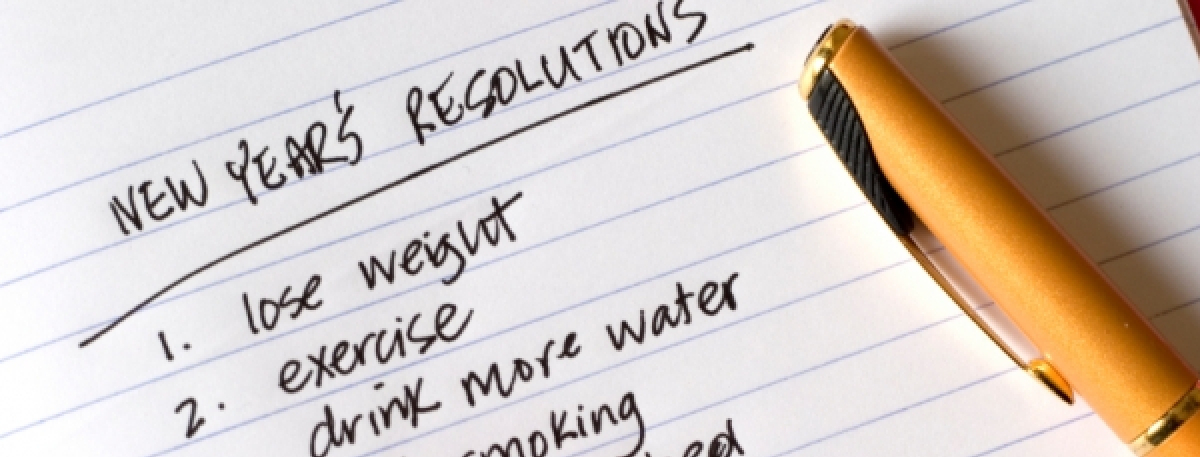 NEW YEAR'S RESOLUTIONS
1. lose weight
2. exercise
drink more water
smoking